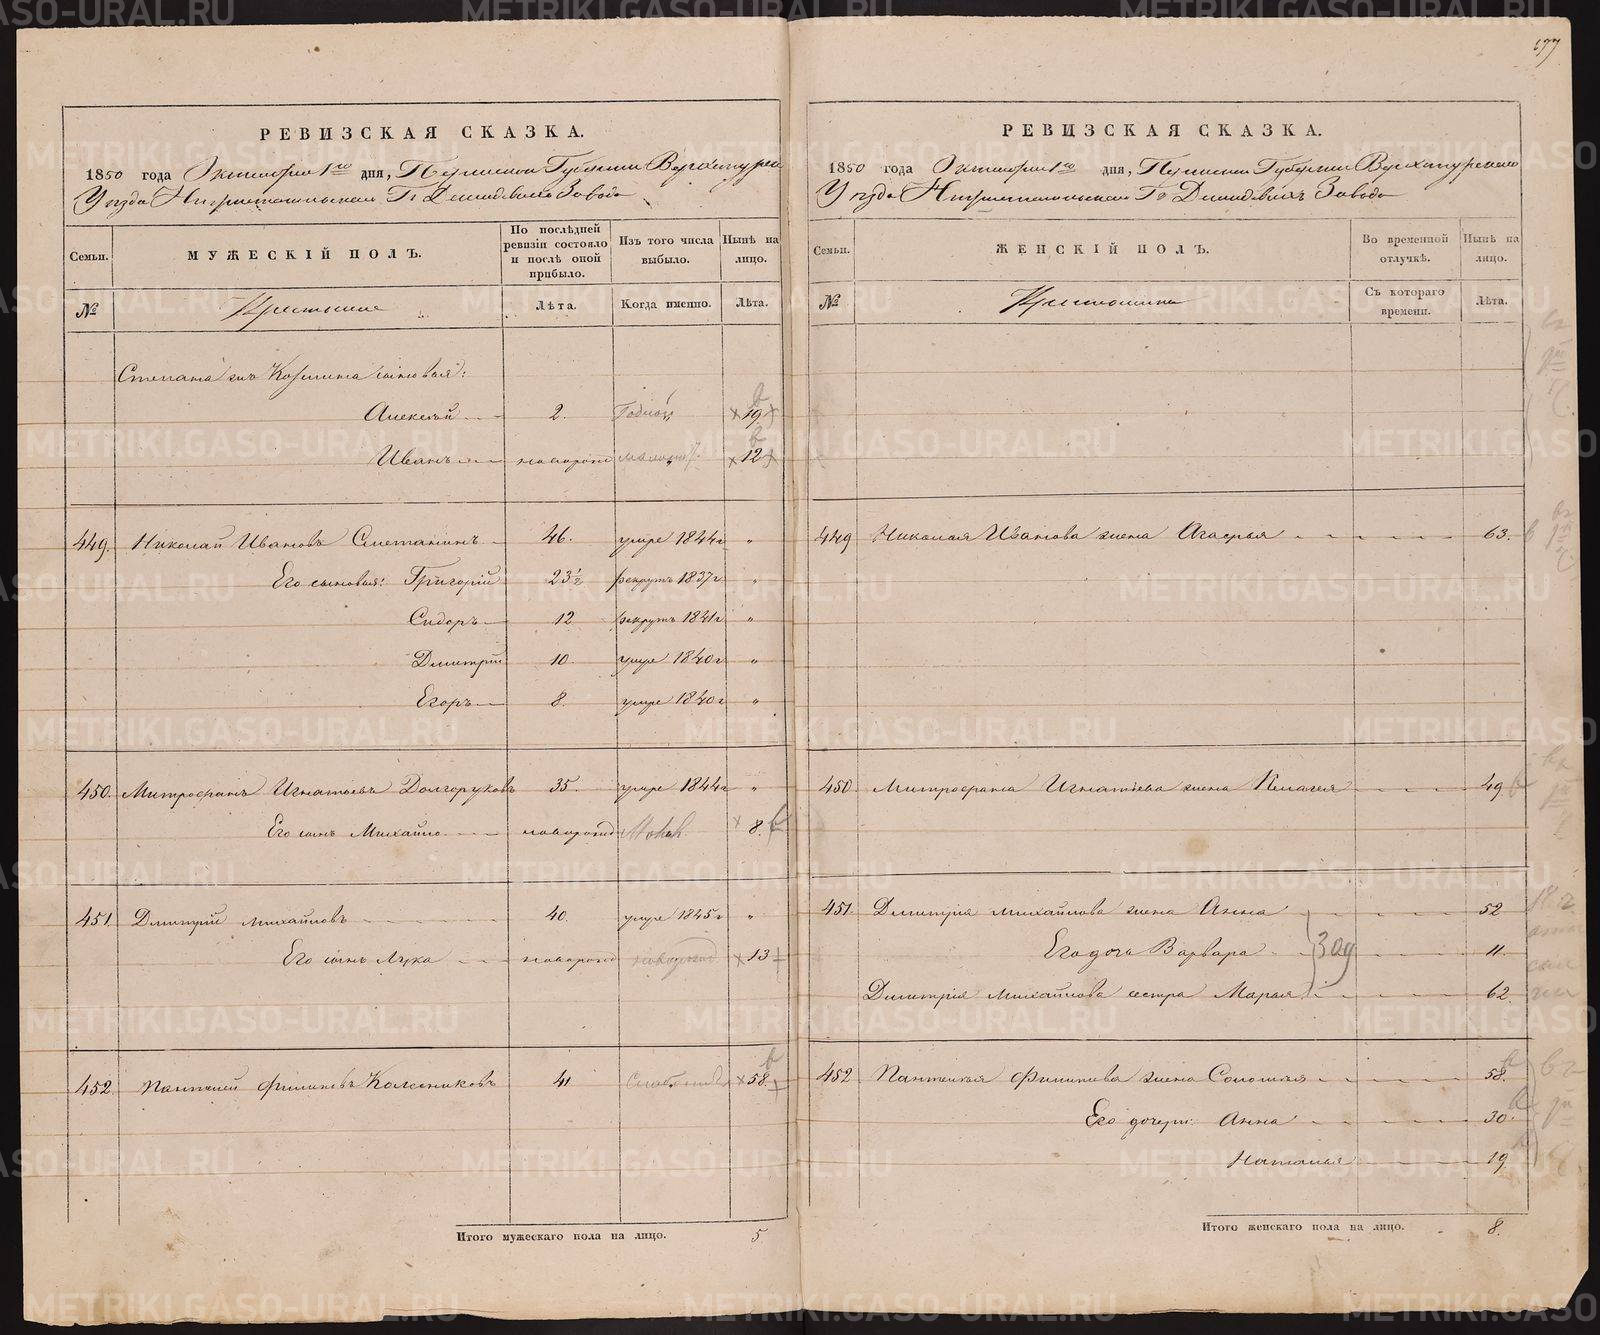 177
РЕВИЗСКАЯ СКАЗКА.
1850 года Октября 1го дня, Пермской Губернии Верхотурска
Уезда Нижнетагильскаго Гг. Демидовыхъ Завода
Семьи.
МУЖЕСКІЙ ПОЛЪ.
По послѣдней ревизіи состояло и послѣ оной прибыло.
Изъ того числа выбыло.
Нынѣ на лицо.
№
Крестьяне
Лѣта.
Когда именно.
Лѣта.
Степана Козмина сыновья:
Алексѣй 2. Годной 19
Иванъ новорожд 12
449. Николай Ивановъ Сметанинъ 46. умре 1844г "
Его сыновья: Григорій 23½ рекрутъ 1837г "
Сидоръ 12 рекрутъ 1841г "
Дмитрій 10. умре 1840г "
Егоръ 8. умре 1840г "
450. Митрофанъ Игнатьевъ Долгоруковъ 35. умре 1844г "
Его сынъ Михайло новорожд 8.
451 Дмитрій Михайловъ 40. умре 1845г "
Его сынъ Лука новорожд 13
452. Пантелей Филиповъ Колесниковъ 41 58.
Итого мужескаго пола на лицо. 5
РЕВИЗСКАЯ СКАЗКА.
1850 года Октября 1го дня, Пермской Губернии Верхотурскаго
Уезда Нижнетагильскаго Гг. Демидовыхъ Завода
Семьи.
ЖЕНСКІЙ ПОЛЪ.
Во временной отлучкѣ.
Нынѣ на лицо.
№
Крестьянки
Съ котораго времени.
Лѣта.
449 Николая Иванова жена Агафья 63.
450 Митрофана Игнатьева жена Пелагея 49
451 Дмитрія Михайлова жена Анна 52
Его дочь Варвара 11.
Дмитрія Михайлова сестра Марья 62.
452 Пантелея Филипова жена Соломея 58.
Его дочери: Анна 30.
Наталья 19
Итого женскаго пола на лицо. 8.
METRIKI.GASO-URAL.RU